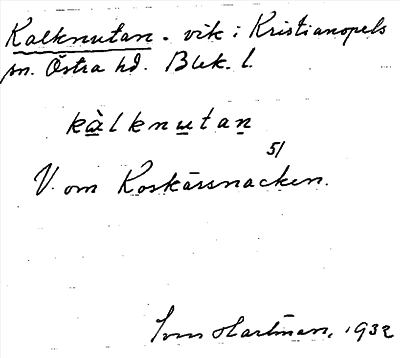 Kalknutan - vik i Kristianopels
sn. Östra hd. Blek. l.
kàlknutan
51
V. om Koskärsnacken.
Hartman, 1932